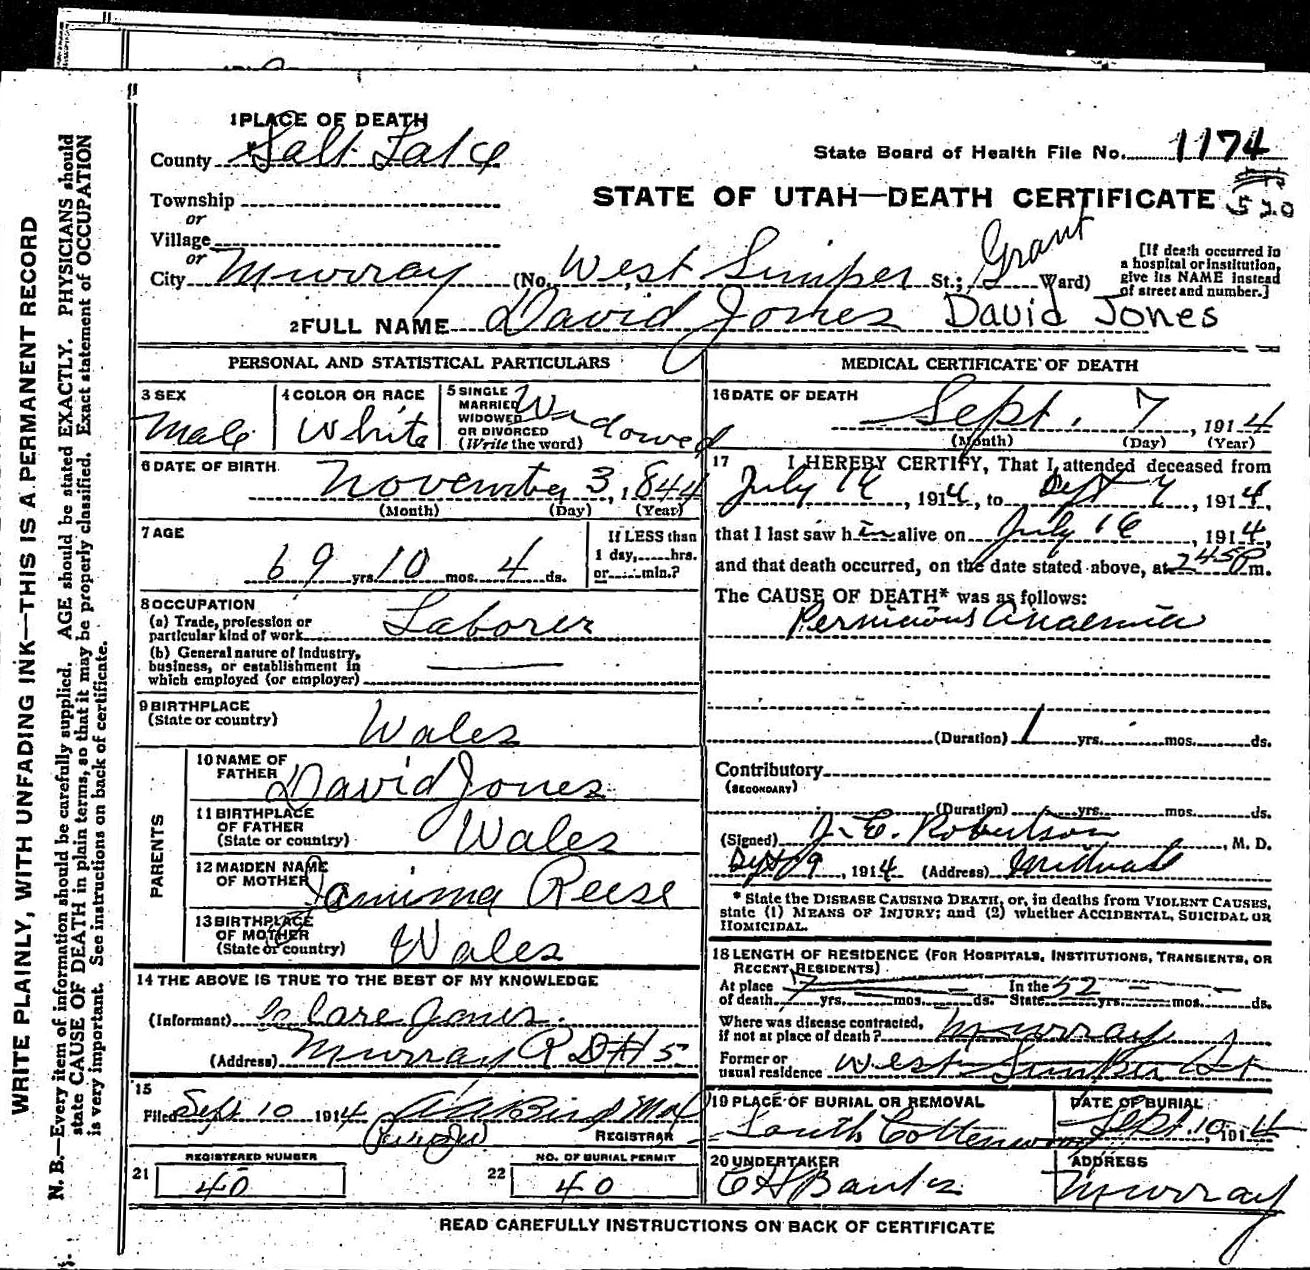 1 PLACE OF DEATH
County Salt Lake
State Board of Health File No. 1174
Township
or
Village
or
STATE OF UTAH—DEATH CERTIFICATE
520
City Murray (No. West Simper St.; Grant Ward)
[If death occurred in a hospital or institution, give its NAME instead of street and number.]
2 FULL NAME David Jones David Jones
PERSONAL AND STATISTICAL PARTICULARS
3 SEX
Male
4 COLOR OR RACE
White
5 SINGLE
MARRIED
WIDOWED
OR DIVORCED
(Write the word)
Widowed
6 DATE OF BIRTH
November 3, 1844
(Month) (Day) (Year)
7 AGE
69 yrs. 10 mos. 4 ds.
If LESS than
1 day, hrs.
or min.?
8 OCCUPATION
(a) Trade, profession or
particular kind of work Laborer
(b) General nature of Industry,
business, or establishment in
which employed (or employer)
9 BIRTHPLACE
(State or country)
Wales
PARENTS
10 NAME OF
FATHER David Jones
11 BIRTHPLACE
OF FATHER
(State or country) Wales
12 MAIDEN NAME
OF MOTHER Reese
13 BIRTHPLACE
OF MOTHER
(State or country) Wales
14 THE ABOVE IS TRUE TO THE BEST OF MY KNOWLEDGE
(Informant) Jones
(Address) Murray R D # 5
15
Filed Sept 10 1914
REGISTRAR
21
REGISTERED NUMBER
40
22
NO. OF BURIAL PERMIT
40
MEDICAL CERTIFICATE OF DEATH
16 DATE OF DEATH
Sept. 7, 1914
(Month) (Day) (Year)
17 I HEREBY CERTIFY, That I attended deceased from
July 16, 1914, to Sept 7, 1914,
that I last saw him alive on July 16, 1914,
and that death occurred, on the date stated above, at 2 45 P m.
The CAUSE OF DEATH* was as follows:
Pernicious Anaemia
(Duration) 1 yrs. mos. ds.
Contributory
(SECONDARY)
(Duration) yrs. mos. ds.
(Signed) J. E. Robertson, M. D.
Sept 9, 1914 (Address) Midvale
* State the DISEASE CAUSING DEATH, or, in deaths from VIOLENT CAUSES,
state (1) MEANS OF INJURY; and (2) whether ACCIDENTAL, SUICIDAL OR
HOMICIDAL.
18 LENGTH OF RESIDENCE (FOR HOSPITALS, INSTITUTIONS, TRANSIENTS, OR
RECENT RESIDENTS)
At place
of death 7 yrs. mos. ds. In the State 52 yrs. mos. ds.
Where was disease contracted,
if not at place of death? Murray
Former or
usual residence West Simper St
19 PLACE OF BURIAL OR REMOVAL
South Cottonwood
DATE OF BURIAL
Sept. 10, 1914
20 UNDERTAKER
ADDRESS
Murray
READ CAREFULLY INSTRUCTIONS ON BACK OF CERTIFICATE
WRITE PLAINLY, WITH UNFADING INK—THIS IS A PERMANENT RECORD
N. B.—Every item of information should be carefully supplied. AGE should be stated EXACTLY. PHYSICIANS should
state CAUSE OF DEATH in plain terms, so that it may be properly classified. Exact statement of OCCUPATION
is very important. See instructions on back of certificate.